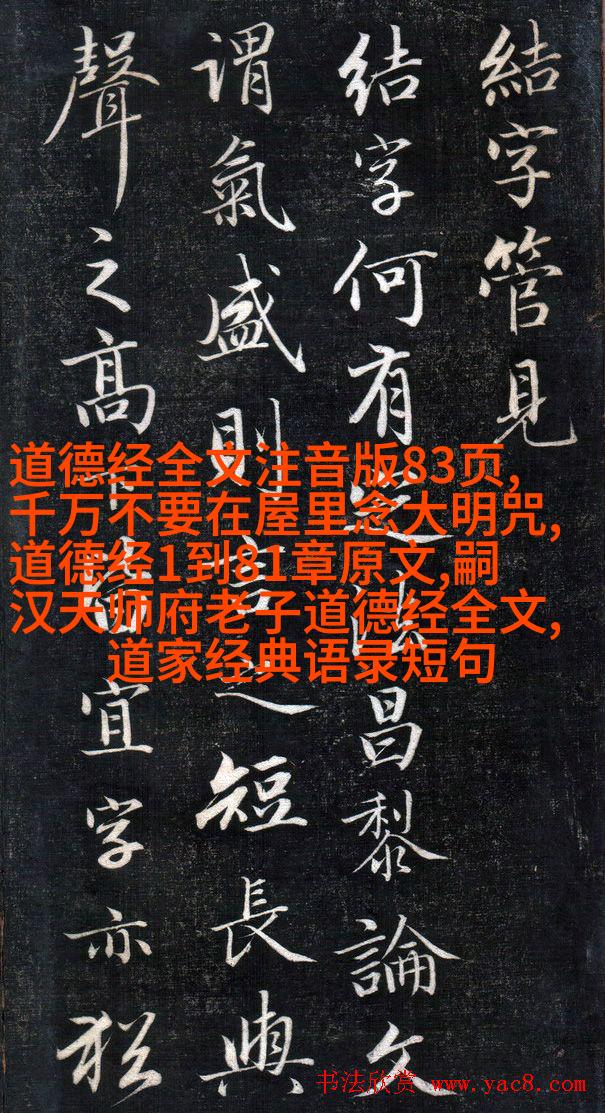 結字管見
结字何有定法昌黎論文
謂氣盛則言之短長與
聲之高下皆宜字亦猶
道德经全文注音版83页,
千万不要在屋里念大明咒,
道德经1到81章原文,嗣
汉天师府老子道德经全文,
道家经典语录短句
书法欣赏 www.yac8.com